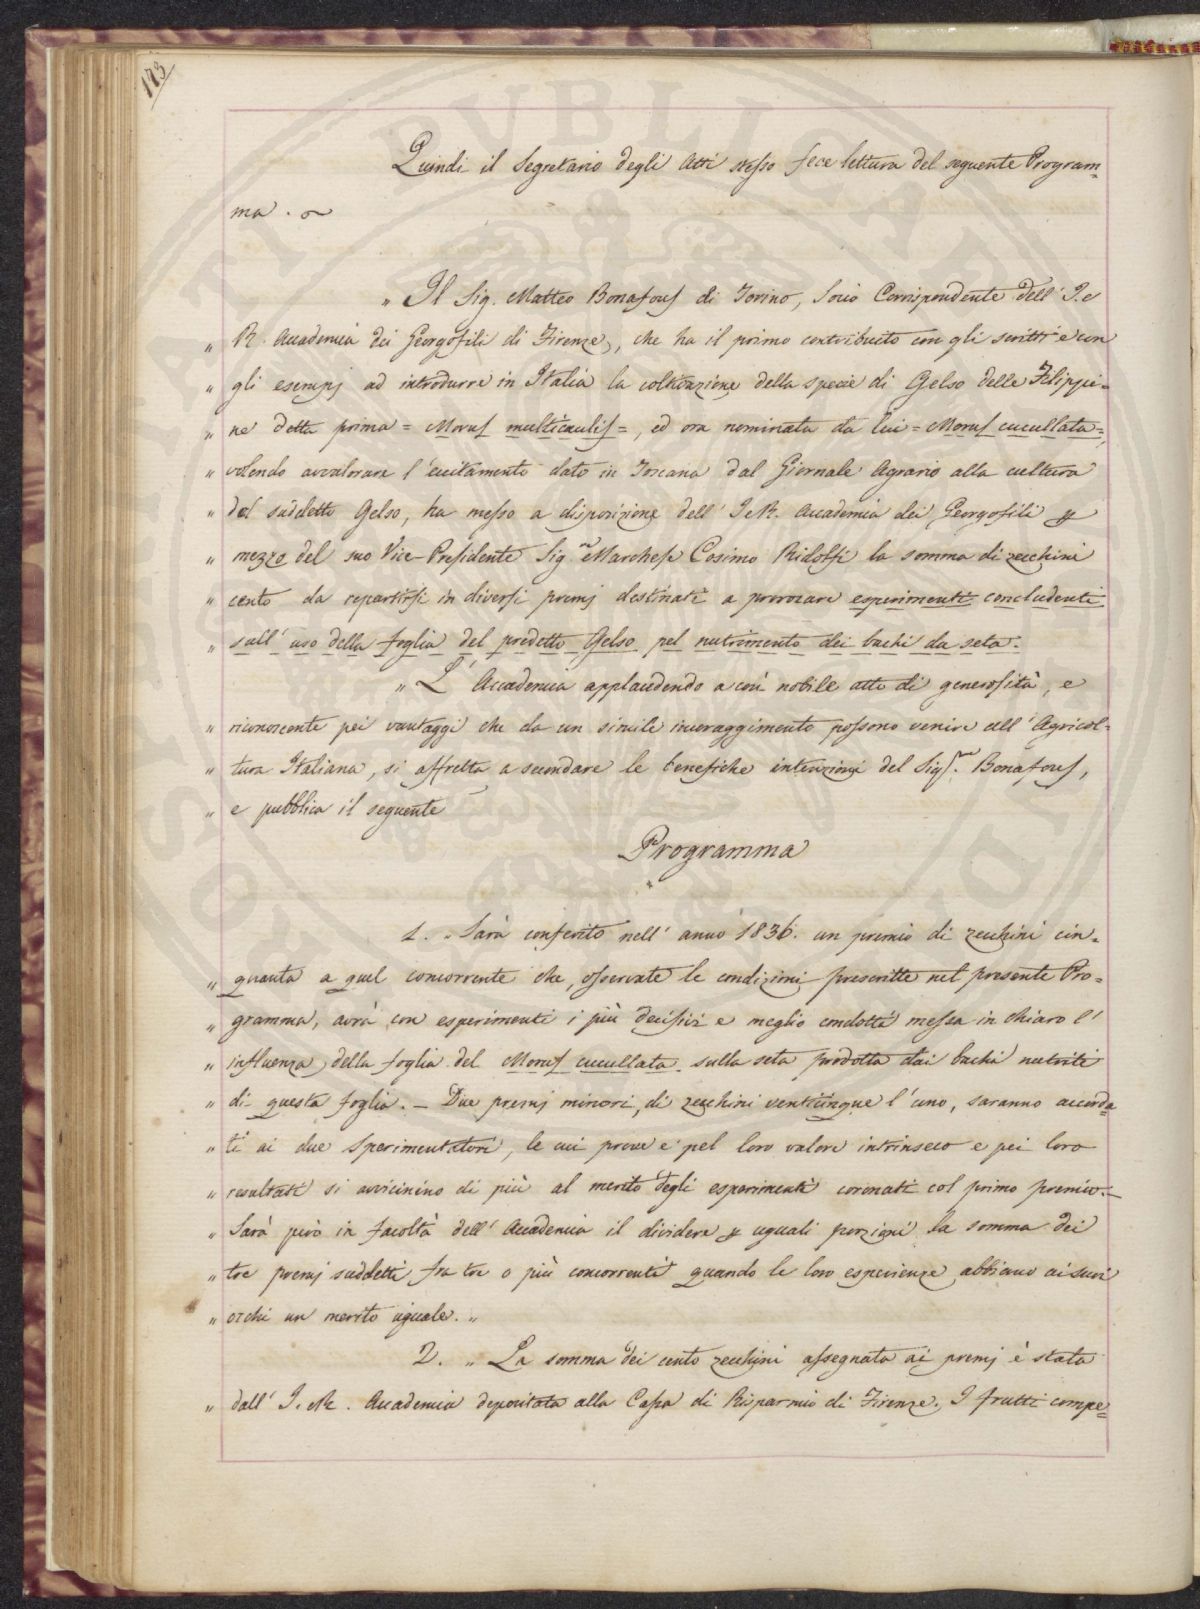 173
Quindi il Segretario degli Atti stesso fece lettura del seguente Program=
ma.
„ Il Sig. Matteo Bonafous di Torino, Socio Corrispondente dell' I. e
„ R. Accademia dei Georgofili di Firenze, che ha il primo contribuito con gli scritti e con
„ gli esempj ad introdurre in Italia la coltivazione della specie di Gelso delle Filippi=
„ ne detta prima = Morus multicaulis =, ed ora nominata da lui = Morus cucullata =,
„ volendo avvalorare l'eccitamento dato in Toscana dal Giornale Agrario alla cultura
„ del suddetto Gelso, ha messo a disposizione dell' I. e R. Accademia dei Georgofili p
„ mezzo del suo Vice-Presidente Sig.re Marchese Cosimo Ridolfi la somma di zecchini
„ cento da repartirsi in diversi premj destinati a provocare esperimenti concludenti
„ sull' uso della foglia del predetto Gelso pel nutrimento dei bachi da seta.
„ L'Accademia applaudendo a così nobile atto di generosità, e
„ riconoscente pei vantaggi che da un simile incoraggimento possono venire all' Agricol=
„ tura Italiana, si affretta a secondare le benefiche intenzioni del Sig.re Bonafous,
„ e pubblica il seguente
Programma
1. „ Sarà conferito nell' anno 1836. un premio di zecchini cin=
„ quanta a quel concorrente che, osservate le condizioni prescritte nel presente Pro=
„ gramma, avrà con esperimenti i più decisivi e meglio condotti messa in chiaro l'
„ influenza della foglia del Morus cucullata sulla seta prodotta dai bachi nutriti
„ di questa foglia. — Due premj minori, di zecchini venticinque l'uno, saranno accorda
„ ti ai due Sperimentatori, le cui prove e pel loro valore intrinseco e pei loro
„ resultati si avvicinino di più al merito degli esperimenti coronati col primo premio. —
„ Sarà però in facoltà dell' Accademia il dividere p uguali porzioni la somma dei
„ tre premj suddetti fra tre o più concorrenti quando le loro esperienze abbiano ai suoi
„ occhi un merito uguale. „
2. „ La somma dei cento zecchini assegnata ai premj è stata
„ dall' I. e R. Accademia depositata alla Cassa di Risparmio di Firenze. I frutti compe=